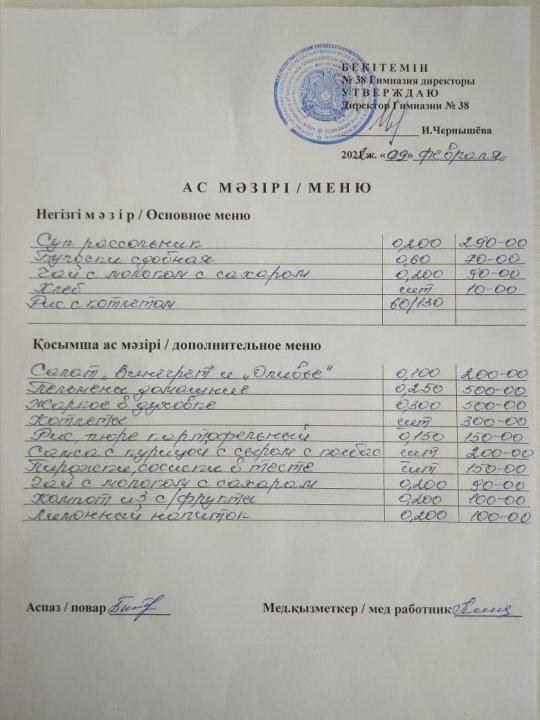 БЕКІТЕМІН
№ 38 Гимназия директоры
УТВЕРЖДАЮ
Директор Гимназии № 38
И.Чернышёва
2022ж. «09» февраля
АС МӘЗІРІ / МЕНЮ
Негізгі мәзір / Основное меню
Суп рассольник 0,200 290-00
Булочки сдобная 0,60 70-00
Чай с молоком с сахаром 0,200 90-00
Хлеб шт 10-00
Рис с котлетом 60/130
Қосымша ас мәзірі / дополнительное меню
Салат „Винегрет" и „Оливье" 0,100 200-00
Пельмены домашние 0,250 500-00
Жаркое в духовке 0,300 500-00
Котлеты шт 300-00
Рис, пюре картофельный 0,150 150-00
Самса с курицой с сыром с колбас шт 200-00
Пирожки, сосиски в тесте шт 150-00
Чай с молоком с сахаром 0,200 90-00
Компот из с/фрукты 0,200 100-00
Лимонный напиток 0,200 100-00
Аспаз / повар Мед.қызметкер / мед работник